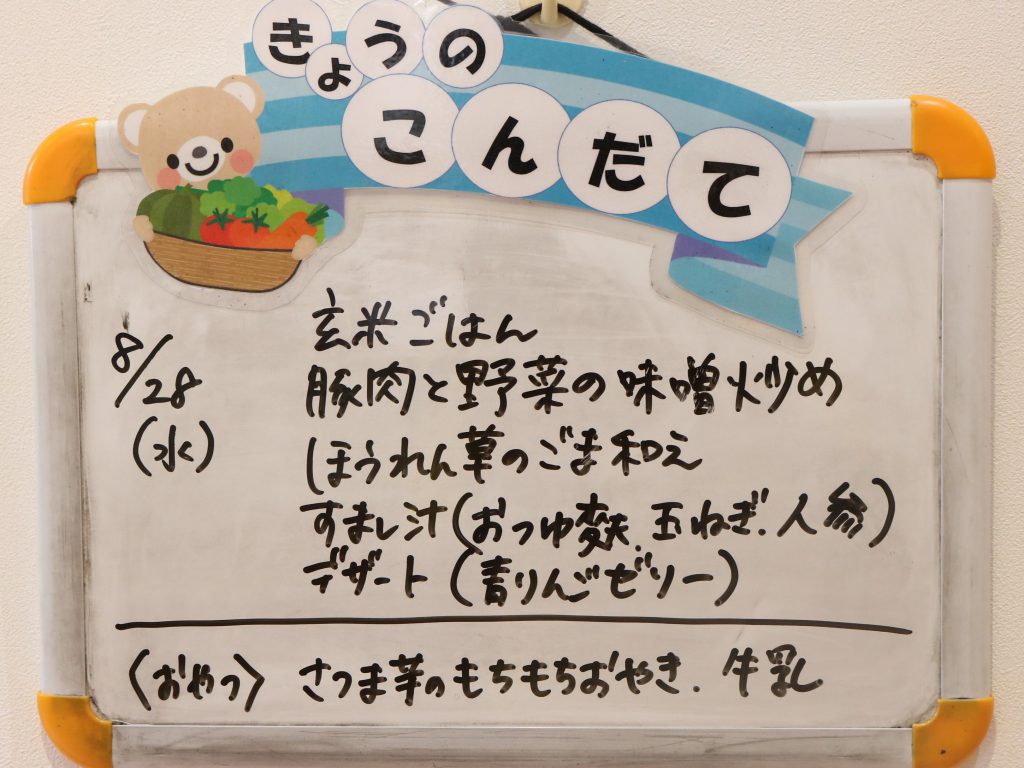 きょうの
こんだて
8/28
(水)
玄米ごはん
豚肉と野菜の味噌炒め
ほうれん草のごま和え
すまし汁(おつゆ麸.玉ねぎ.人参)
デザート(青りんごゼリー)
〈おやつ〉 さつま芋のもちもちおやき. 牛乳